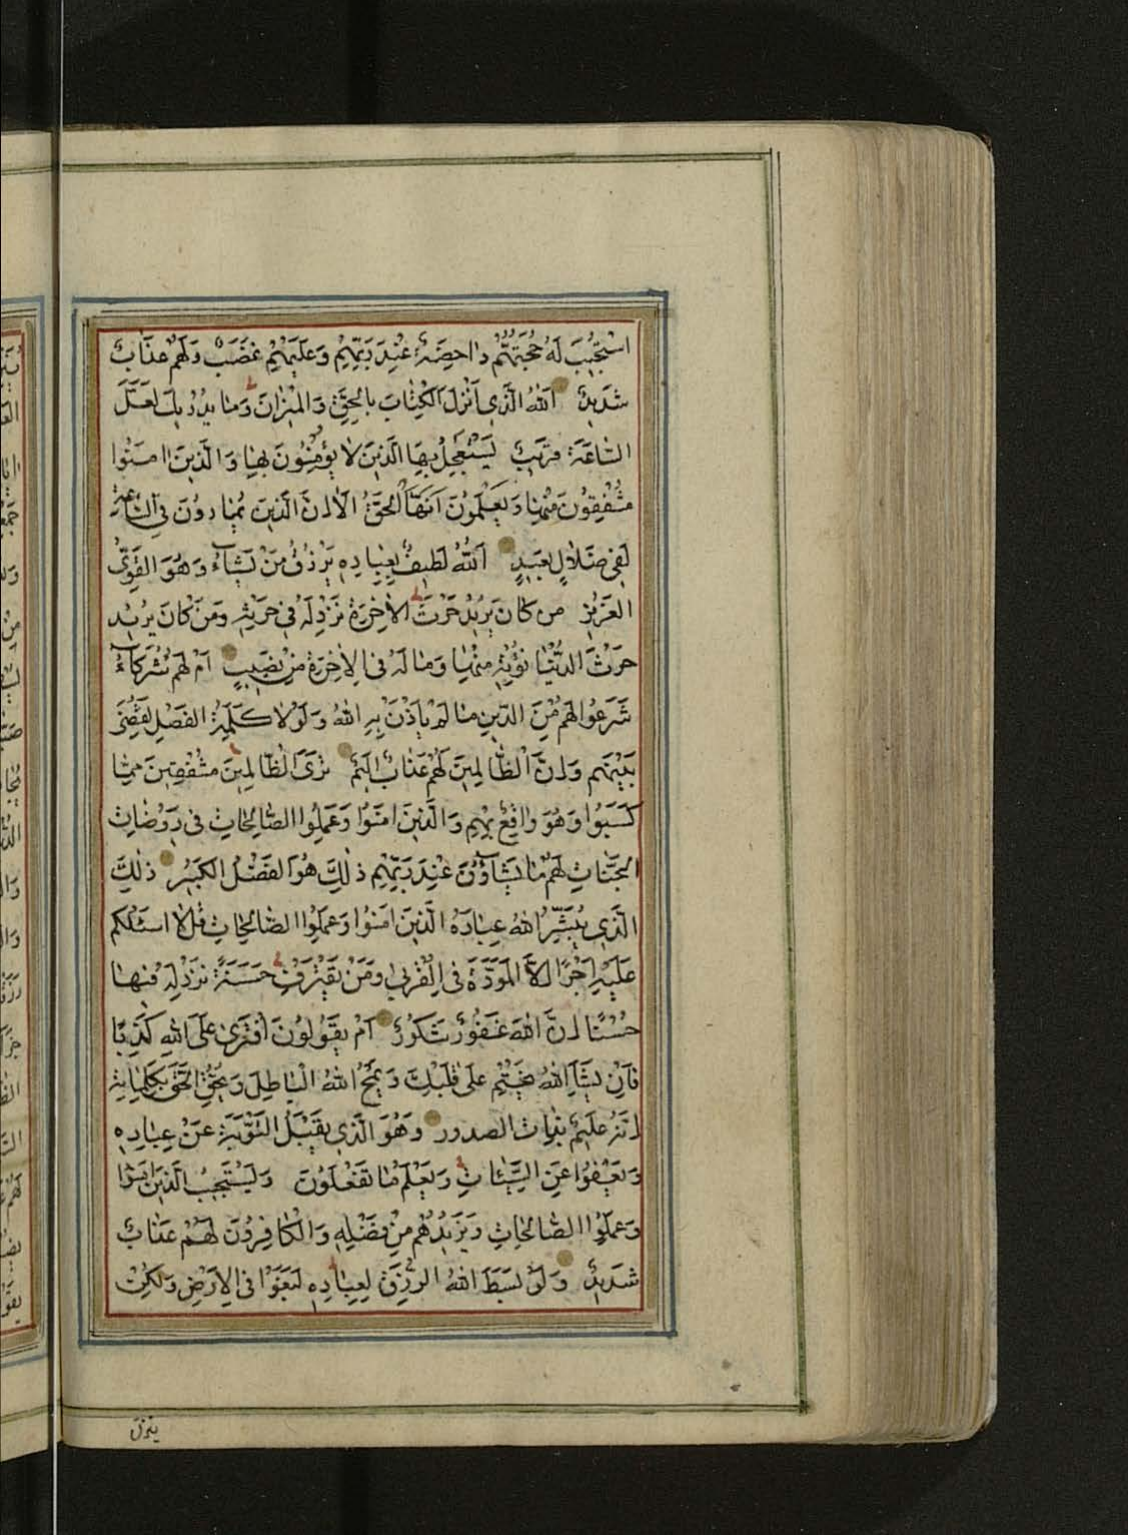 اسْتُجِيبَ لَهُ حُجَّتُهُمْ دَاحِضَةٌ عِنْدَ رَبِّهِمْ وَعَلَيْهِمْ غَضَبٌ وَلَهُمْ عَذَابٌ
شَدِيدٌ اَللهُ الَّذِي اَنْزَلَ الْكِتَابَ بِالْحَقِّ وَالْمِيزَانَ وَمَا يُدْرِيكَ لَعَلَّ
السَّاعَةَ قَرِيبٌ يَسْتَعْجِلُ بِهَا الَّذِينَ لَا يُؤْمِنُونَ بِهَا وَالَّذِينَ اٰمَنُوا
مُشْفِقُونَ مِنْهَا وَيَعْلَمُونَ اَنَّهَا الْحَقُّ اَلَا اِنَّ الَّذِينَ يُمَارُونَ فِي السَّاعَةِ
لَفِي ضَلَالٍ بَعِيدٍ اَللهُ لَطِيفٌ بِعِبَادِهِ يَرْزُقُ مَنْ يَشَآءُ وَهُوَ الْقَوِيُّ
الْعَزِيزُ مَنْ كَانَ يُرِيدُ حَرْثَ الْاٰخِرَةِ نَزِدْ لَهُ فِي حَرْثِهِ وَمَنْ كَانَ يُرِيدُ
حَرْثَ الدُّنْيَا نُؤْتِهِ مِنْهَا وَمَا لَهُ فِي الْاٰخِرَةِ مِنْ نَصِيبٍ اَمْ لَهُمْ شُرَكَآءُ
شَرَعُوا لَهُمْ مِنَ الدِّينِ مَا لَمْ يَأْذَنْ بِهِ اللهُ وَلَوْلَا كَلِمَةُ الْفَصْلِ لَقُضِيَ
بَيْنَهُمْ وَاِنَّ الظَّالِمِينَ لَهُمْ عَذَابٌ اَلِيمٌ تَرَى الظَّالِمِينَ مُشْفِقِينَ مِمَّا
كَسَبُوا وَهُوَ وَاقِعٌ بِهِمْ وَالَّذِينَ اٰمَنُوا وَعَمِلُوا الصَّالِحَاتِ فِي رَوْضَاتِ
الْجَنَّاتِ لَهُمْ مَا يَشَآؤُنَ عِنْدَ رَبِّهِمْ ذٰلِكَ هُوَ الْفَضْلُ الْكَبِيرُ ذٰلِكَ
الَّذِي يُبَشِّرُ اللهُ عِبَادَهُ الَّذِينَ اٰمَنُوا وَعَمِلُوا الصَّالِحَاتِ قُلْ لَا اَسْئَلُكُمْ
عَلَيْهِ اَجْرًا اِلَّا الْمَوَدَّةَ فِي الْقُرْبٰى وَمَنْ يَقْتَرِفْ حَسَنَةً نَزِدْ لَهُ فِيهَا
حُسْنًا اِنَّ اللهَ غَفُورٌ شَكُورٌ اَمْ يَقُولُونَ افْتَرٰى عَلَى اللهِ كَذِبًا
فَاِنْ يَشَاِ اللهُ يَخْتِمْ عَلٰى قَلْبِكَ وَيَمْحُ اللهُ الْبَاطِلَ وَيُحِقُّ الْحَقَّ بِكَلِمَاتِهِ
اِنَّهُ عَلِيمٌ بِذَاتِ الصُّدُورِ وَهُوَ الَّذِي يَقْبَلُ التَّوْبَةَ عَنْ عِبَادِهِ
وَيَعْفُوا عَنِ السَّيِّئَاتِ وَيَعْلَمُ مَا تَفْعَلُونَ وَيَسْتَجِيبُ الَّذِينَ اٰمَنُوا
وَعَمِلُوا الصَّالِحَاتِ وَيَزِيدُهُمْ مِنْ فَضْلِهِ وَالْكَافِرُونَ لَهُمْ عَذَابٌ
شَدِيدٌ وَلَوْ بَسَطَ اللهُ الرِّزْقَ لِعِبَادِهِ لَبَغَوْا فِي الْاَرْضِ وَلٰكِنْ
ينزل